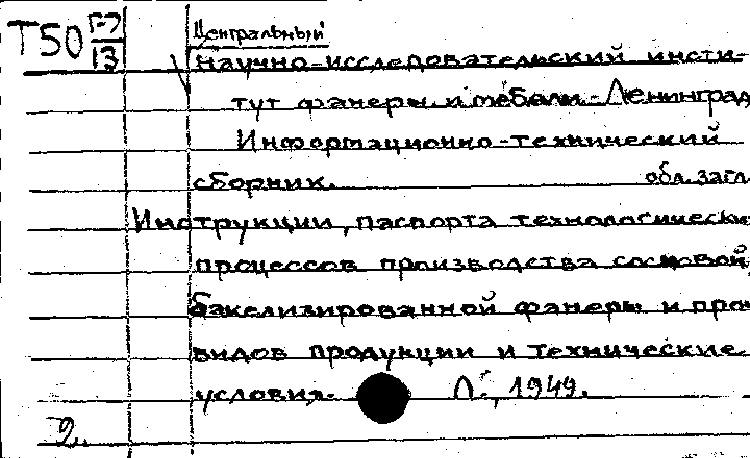 Т50 Г-7/13
Центральный
научно-исследовательский инсти-
тут фанеры и мебели. Ленинград
Информационно-технический
сборник. обл. загл.
Инструкции, паспорта технологически
процессов производства сосновой,
бакелизированной фанеры и про
видов продукции и технические
условия. Л., 1949.
2.